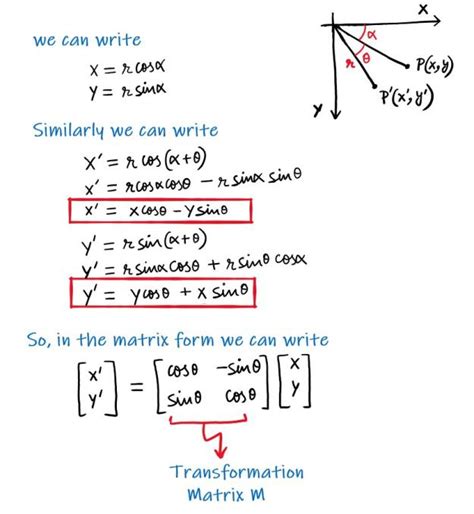 we can write
x = r cosα
y = r sinα
X
α
θ
r
P(x,y)
P'(x',y')
Y
Similarly we can write
x' = r cos(α+θ)
x' = r cosα cosθ − r sinα sinθ
x' = x cosθ − y sinθ
y' = r sin(α+θ)
y' = r sinα cosθ + r sinθ cosα
y' = y cosθ + x sinθ
So, in the matrix form we can write
[x'] = [cosθ −sinθ] [x]
[y'] [sinθ cosθ] [y]
Transformation
Matrix M